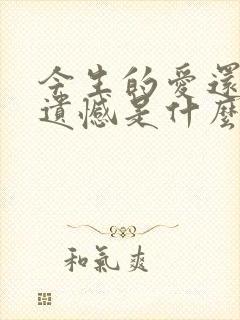 今生的愛還
遺憾是什麼
和氣爽